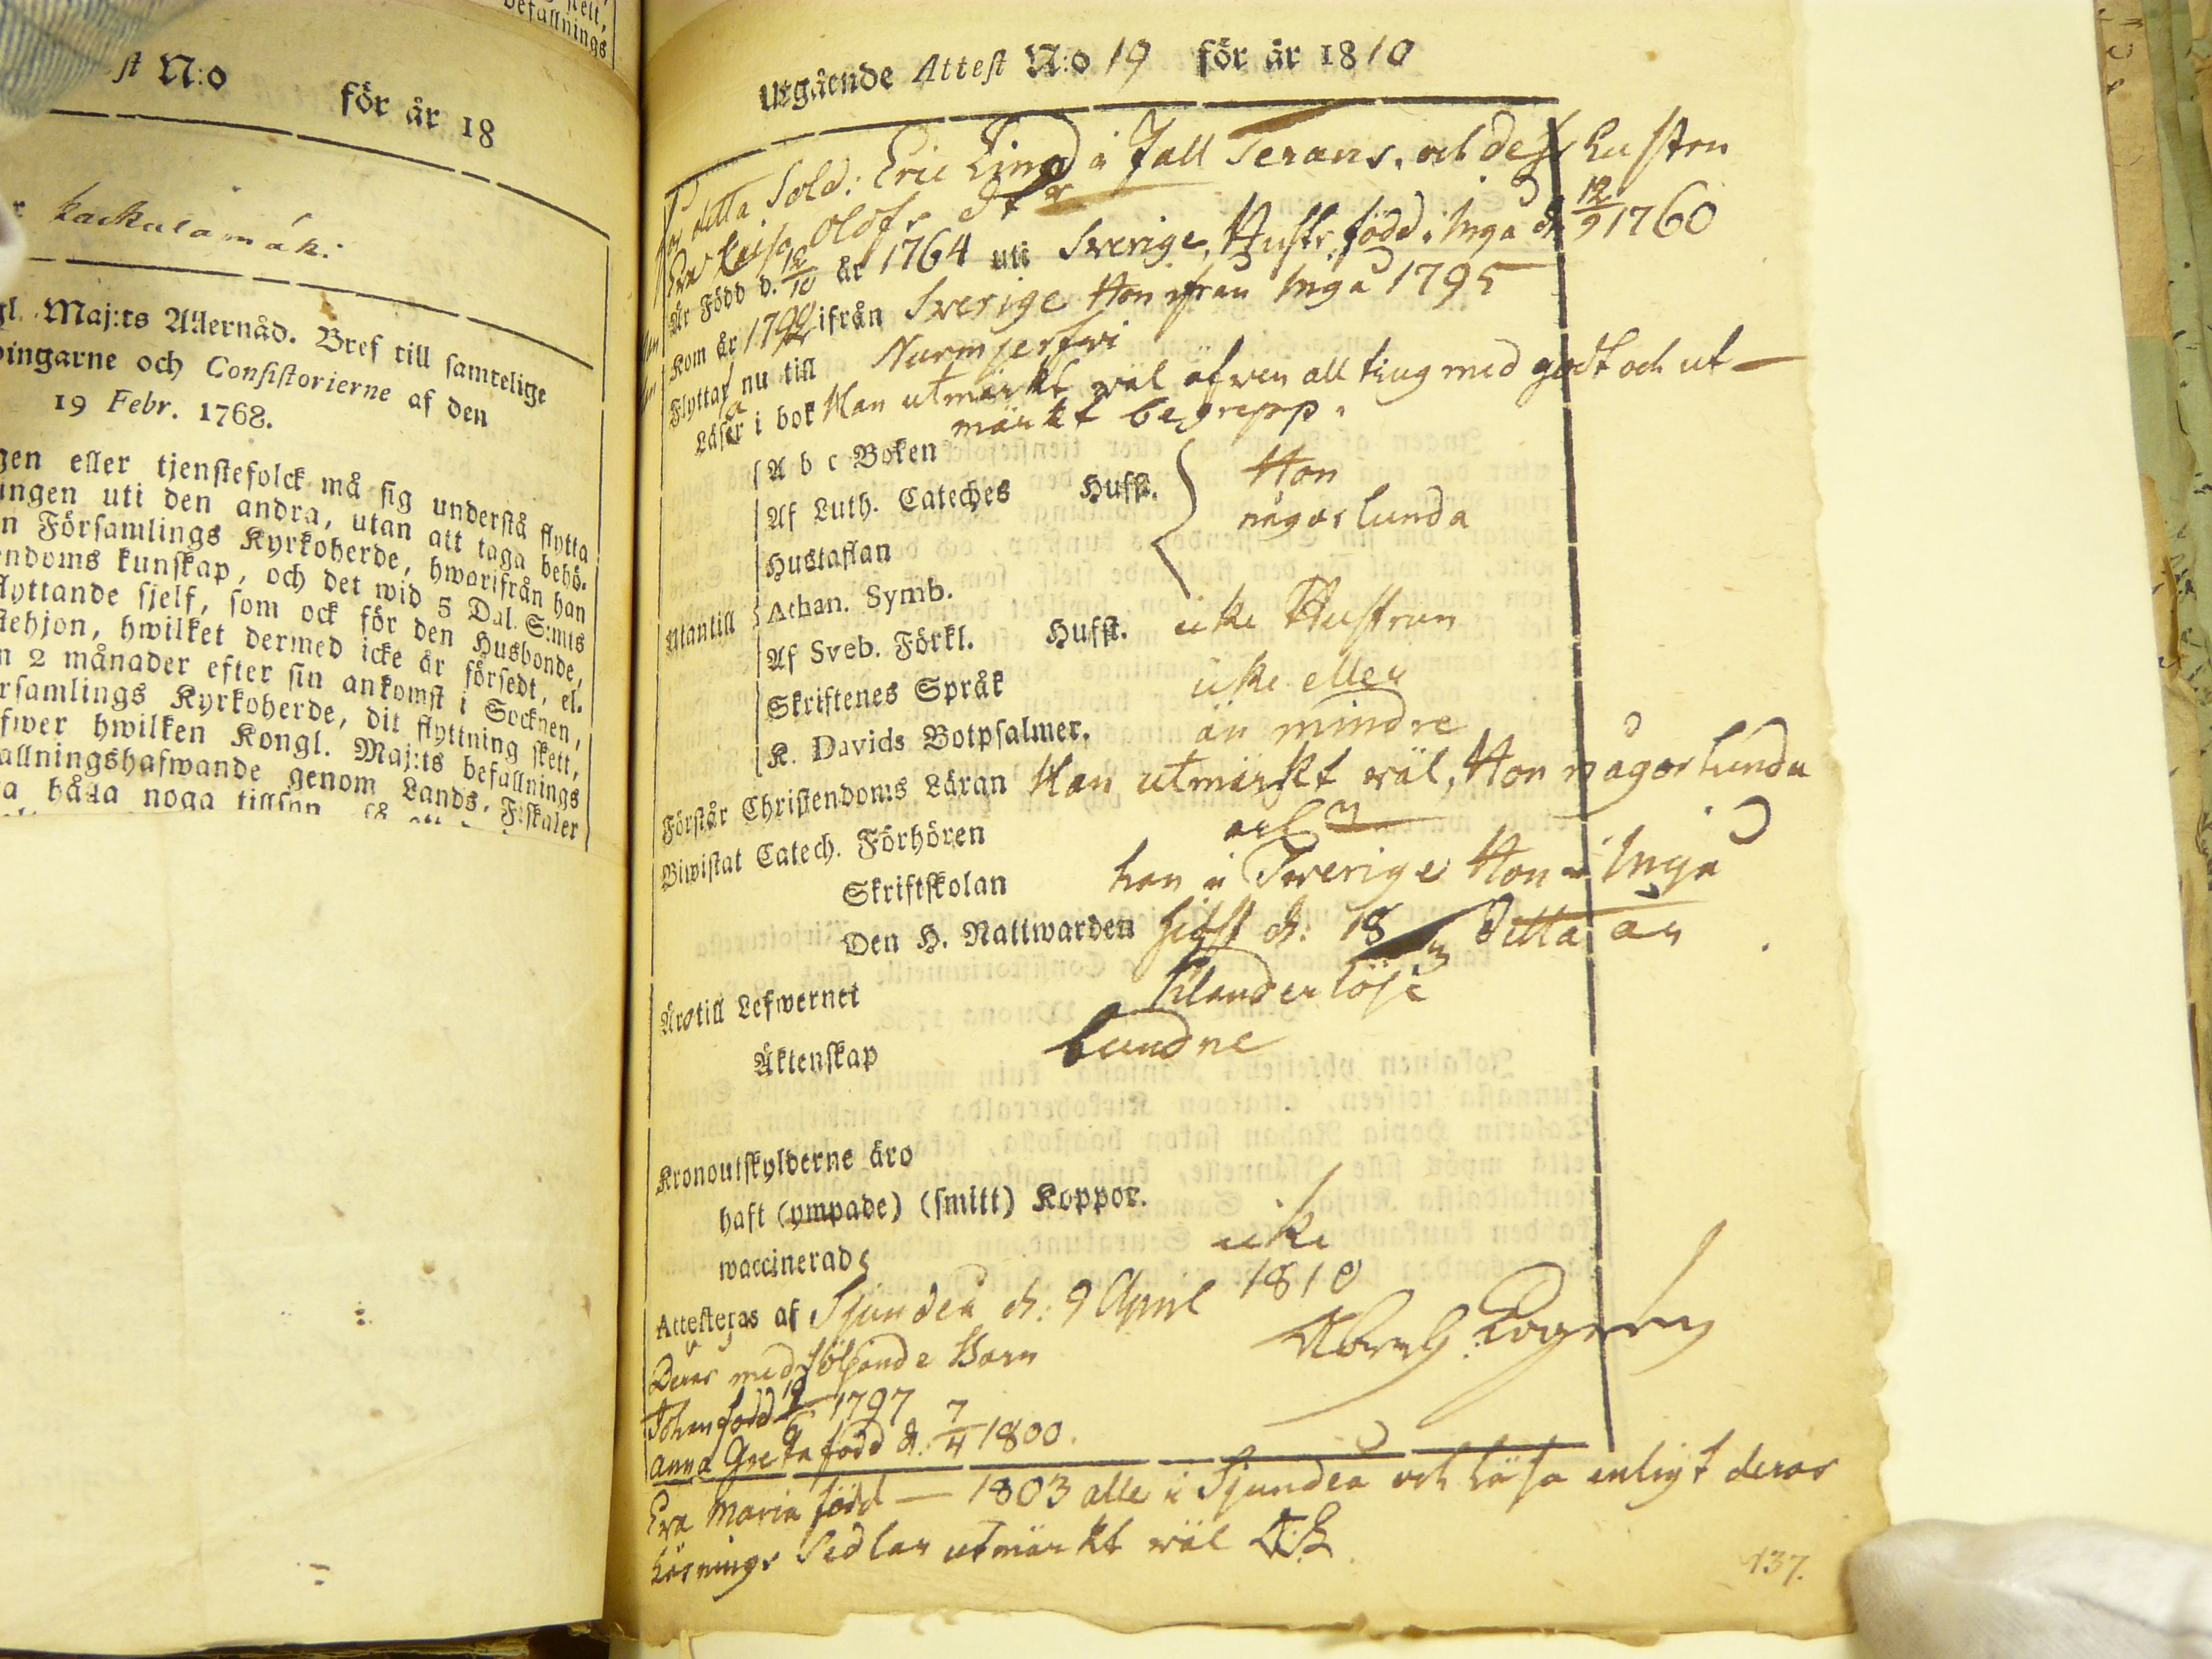 befallnings
st N:o för år 18
Kackulamäk:
gl. Maj:ts Allernåd. Bref till samtelige
dingarne och Consistorierne af den
19 Febr. 1768.
gen eller tjenstefolck må sig understå flytta
ingen uti den andra, utan att taga behö-
n Församlings Kyrkoherde, hwarifrån han
endoms kunskap, och det wid 5 Dal. S:mts
flyttande sjelf, som ock för den Husbonde,
stehjon, hwilket dermed icke är försedt, el.
n 2 månader efter sin ankomst i Socknen,
rsamlings Kyrkoherde, dit flyttning skett,
fwer hwilken Kongl. Maj:ts befallnings
allningshafwande genom Lands, Fiskaler
a hålla noga tillsyn
Utgående Attest N:o 19 för år 1810
detta Sold: Eric Lind i Fall Terans, och dess Hustru
Eva Caisa Olofs dr
Är Född d. 12/10 år 1764 uti Sverige, Hustr. född i Ingå d. 12/9 1760
Kom år 1799 ifrån Sverige Hon ifrån Ingå 1795
Flyttar nu till Nurmijerfwi
Läsa i bok Han utmärkt wäl äfwen all ting med godt och ut-
märkt begrepp.
A b c Boken
Af Luth. Cateches Husfl. Hon
Hustaflan någorlunda
Utantill Athan. Symb.
Af Sveb. Förkl. Husfl. icke Hustrun
Skriftenes Språk icke eller
K. Davids Botpsalmer. än mindre
Förstår Christendoms Läran Han utmärkt wäl, Hon någorlunda
Biwistat Catech. Förhören
Skriftskolan han i Sverige Hon i Ingå
Den H. Nattwarden sidst d: 18/3 detta år
Äro till Lefwernet Klanderlöse
Äktenskap bundne
Kronoutskylderne äro
haft (ympade) (smitt) Koppor.
waccinerade icke
Attesteras af Sjundeå d: 9 April 1810
Deras medföljande Barn
Johan född 19/6 1797
Anna Greta född d. 7/4 1800.
Eva Maria född — 1803 alle i Sjundeå och läsa enligt deras
Läsnings Sedlar utmärkt wäl
137.